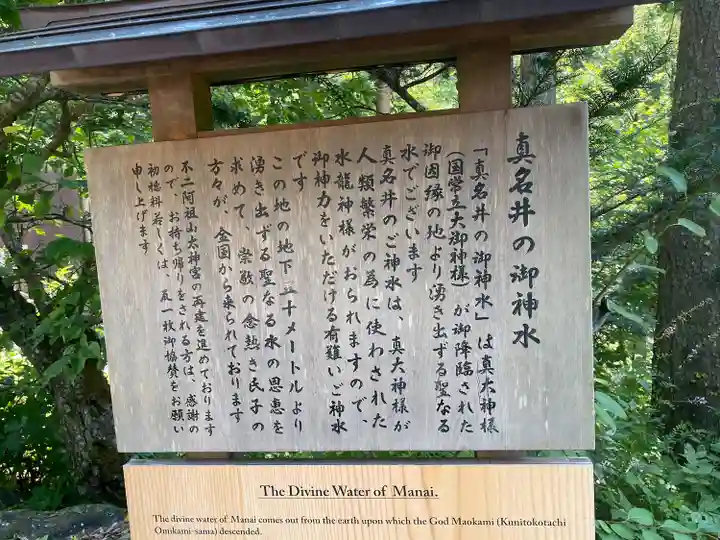 真名井の御神水
「真名井の御神水」は真大神様
(国常立大御神様)が御降臨された
御因縁の地より湧き出ずる聖なる
水でございます
真名井のご神水は、真大神様が
人類繁栄の為に使わされた
水龍神様がおられますので、
御神力をいただける有難いご神水
です
この地の地下二十メートルより
湧き出ずる聖なる水の恩恵を
求めて、崇敬の念熱き氏子の
方々が、全国から来られております
不二阿祖山太神宮の再建を進めております
ので、お持ち帰りをされる方は、感謝の
初穂料若しくは 瓦一枚御協賛をお願い
申し上げます
The Divine Water of Manai.
The divine water of Manai comes out from the earth upon which the God Maokami (Kunitokotachi
Omikami-sama) descended.